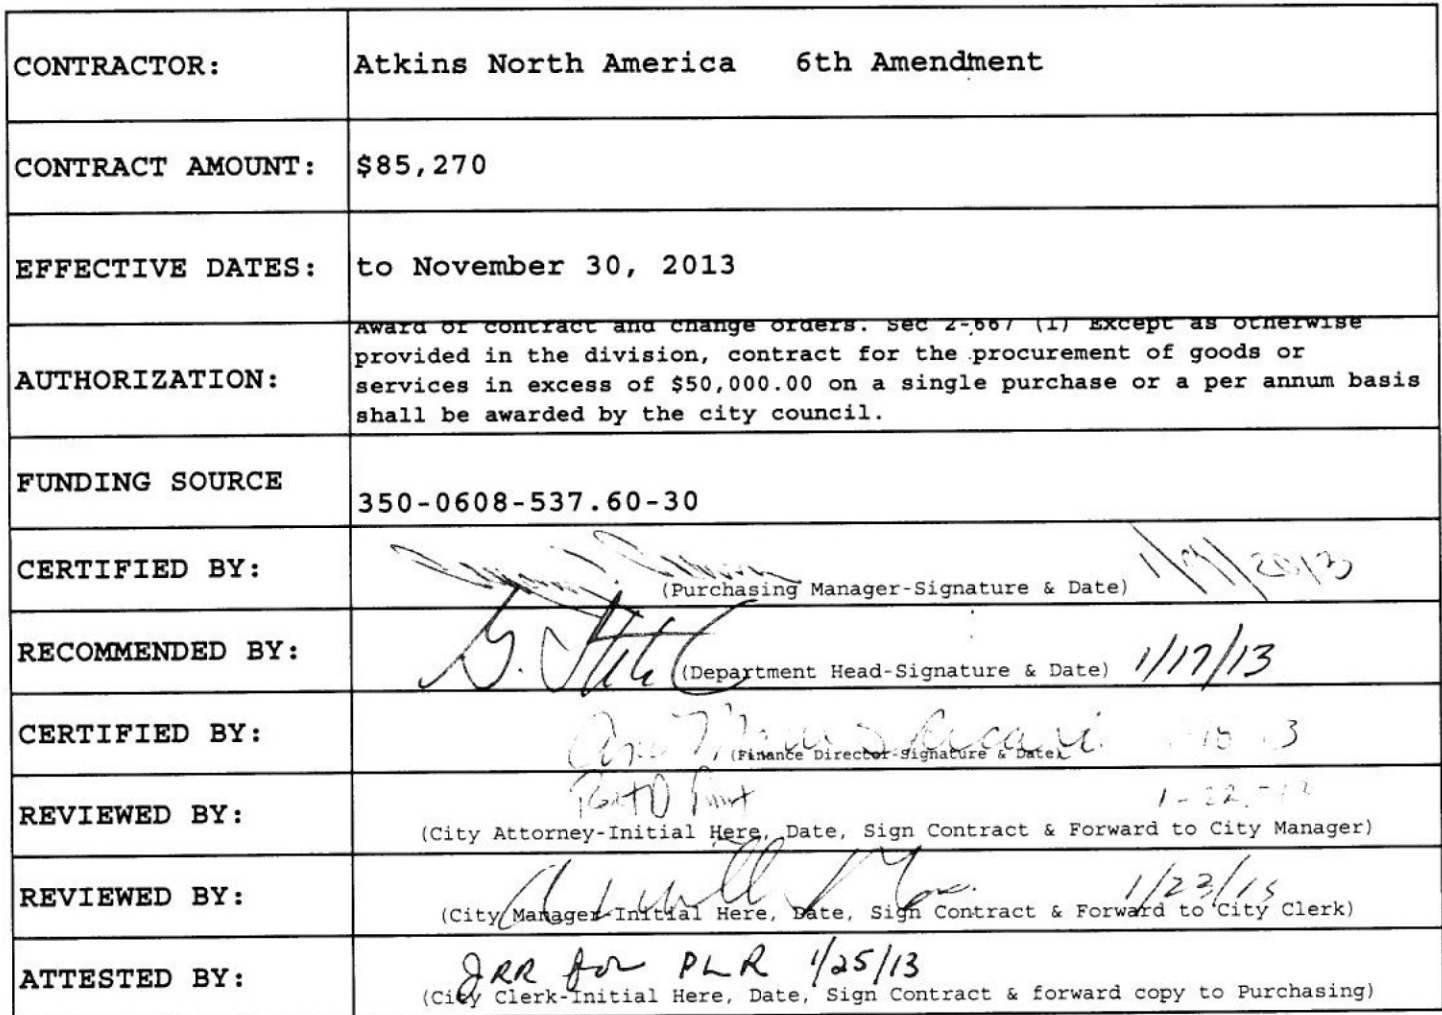 CONTRACTOR: Atkins North America 6th Amendment
CONTRACT AMOUNT: $85,270
EFFECTIVE DATES: to November 30, 2013
Award of contract and change orders. Sec 2-667 (1) Except as otherwise
provided in the division, contract for the procurement of goods or
AUTHORIZATION: services in excess of $50,000.00 on a single purchase or a per annum basis
shall be awarded by the city council.
FUNDING SOURCE
350-0608-537.60-30
CERTIFIED BY:
(Purchasing Manager-Signature & Date)
RECOMMENDED BY:
(Department Head-Signature & Date) 1/17/13
CERTIFIED BY:
(Finance Director-Signature & Date)
REVIEWED BY:
(City Attorney-Initial Here, Date, Sign Contract & Forward to City Manager)
REVIEWED BY: 1/23/13
(City Manager-Initial Here, Date, Sign Contract & Forward to City Clerk)
ATTESTED BY: JRR for PLR 1/25/13
(City Clerk-Initial Here, Date, Sign Contract & forward copy to Purchasing)